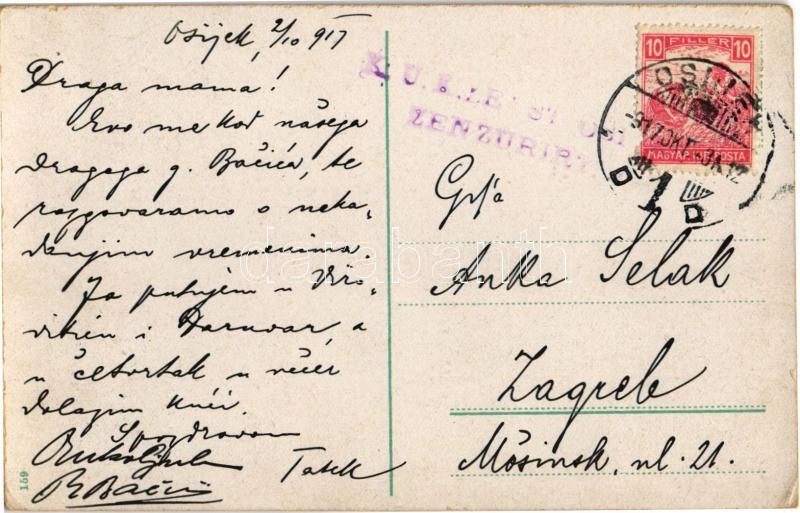 Osijek, 2/10 917
Draga mama!
Evo me kod našega
dragoga g. Bačića, te
razgovaramo o neka-
danjim vremenima.
Ja putujem u Viro-
viticu i Daruvar, a
u četvrtak u večer
dolazim kući.
S pozdravom
Tatek
BBačić
K.U.K.
ZENZURIRT
10 FILLÉR 10
MAGYAR KIR. POSTA
OSIJEK
917 OKT.
1
D D
Gđa
Anka Selak
Zagreb
Mošinsk. ul. 21.
159
darabanth